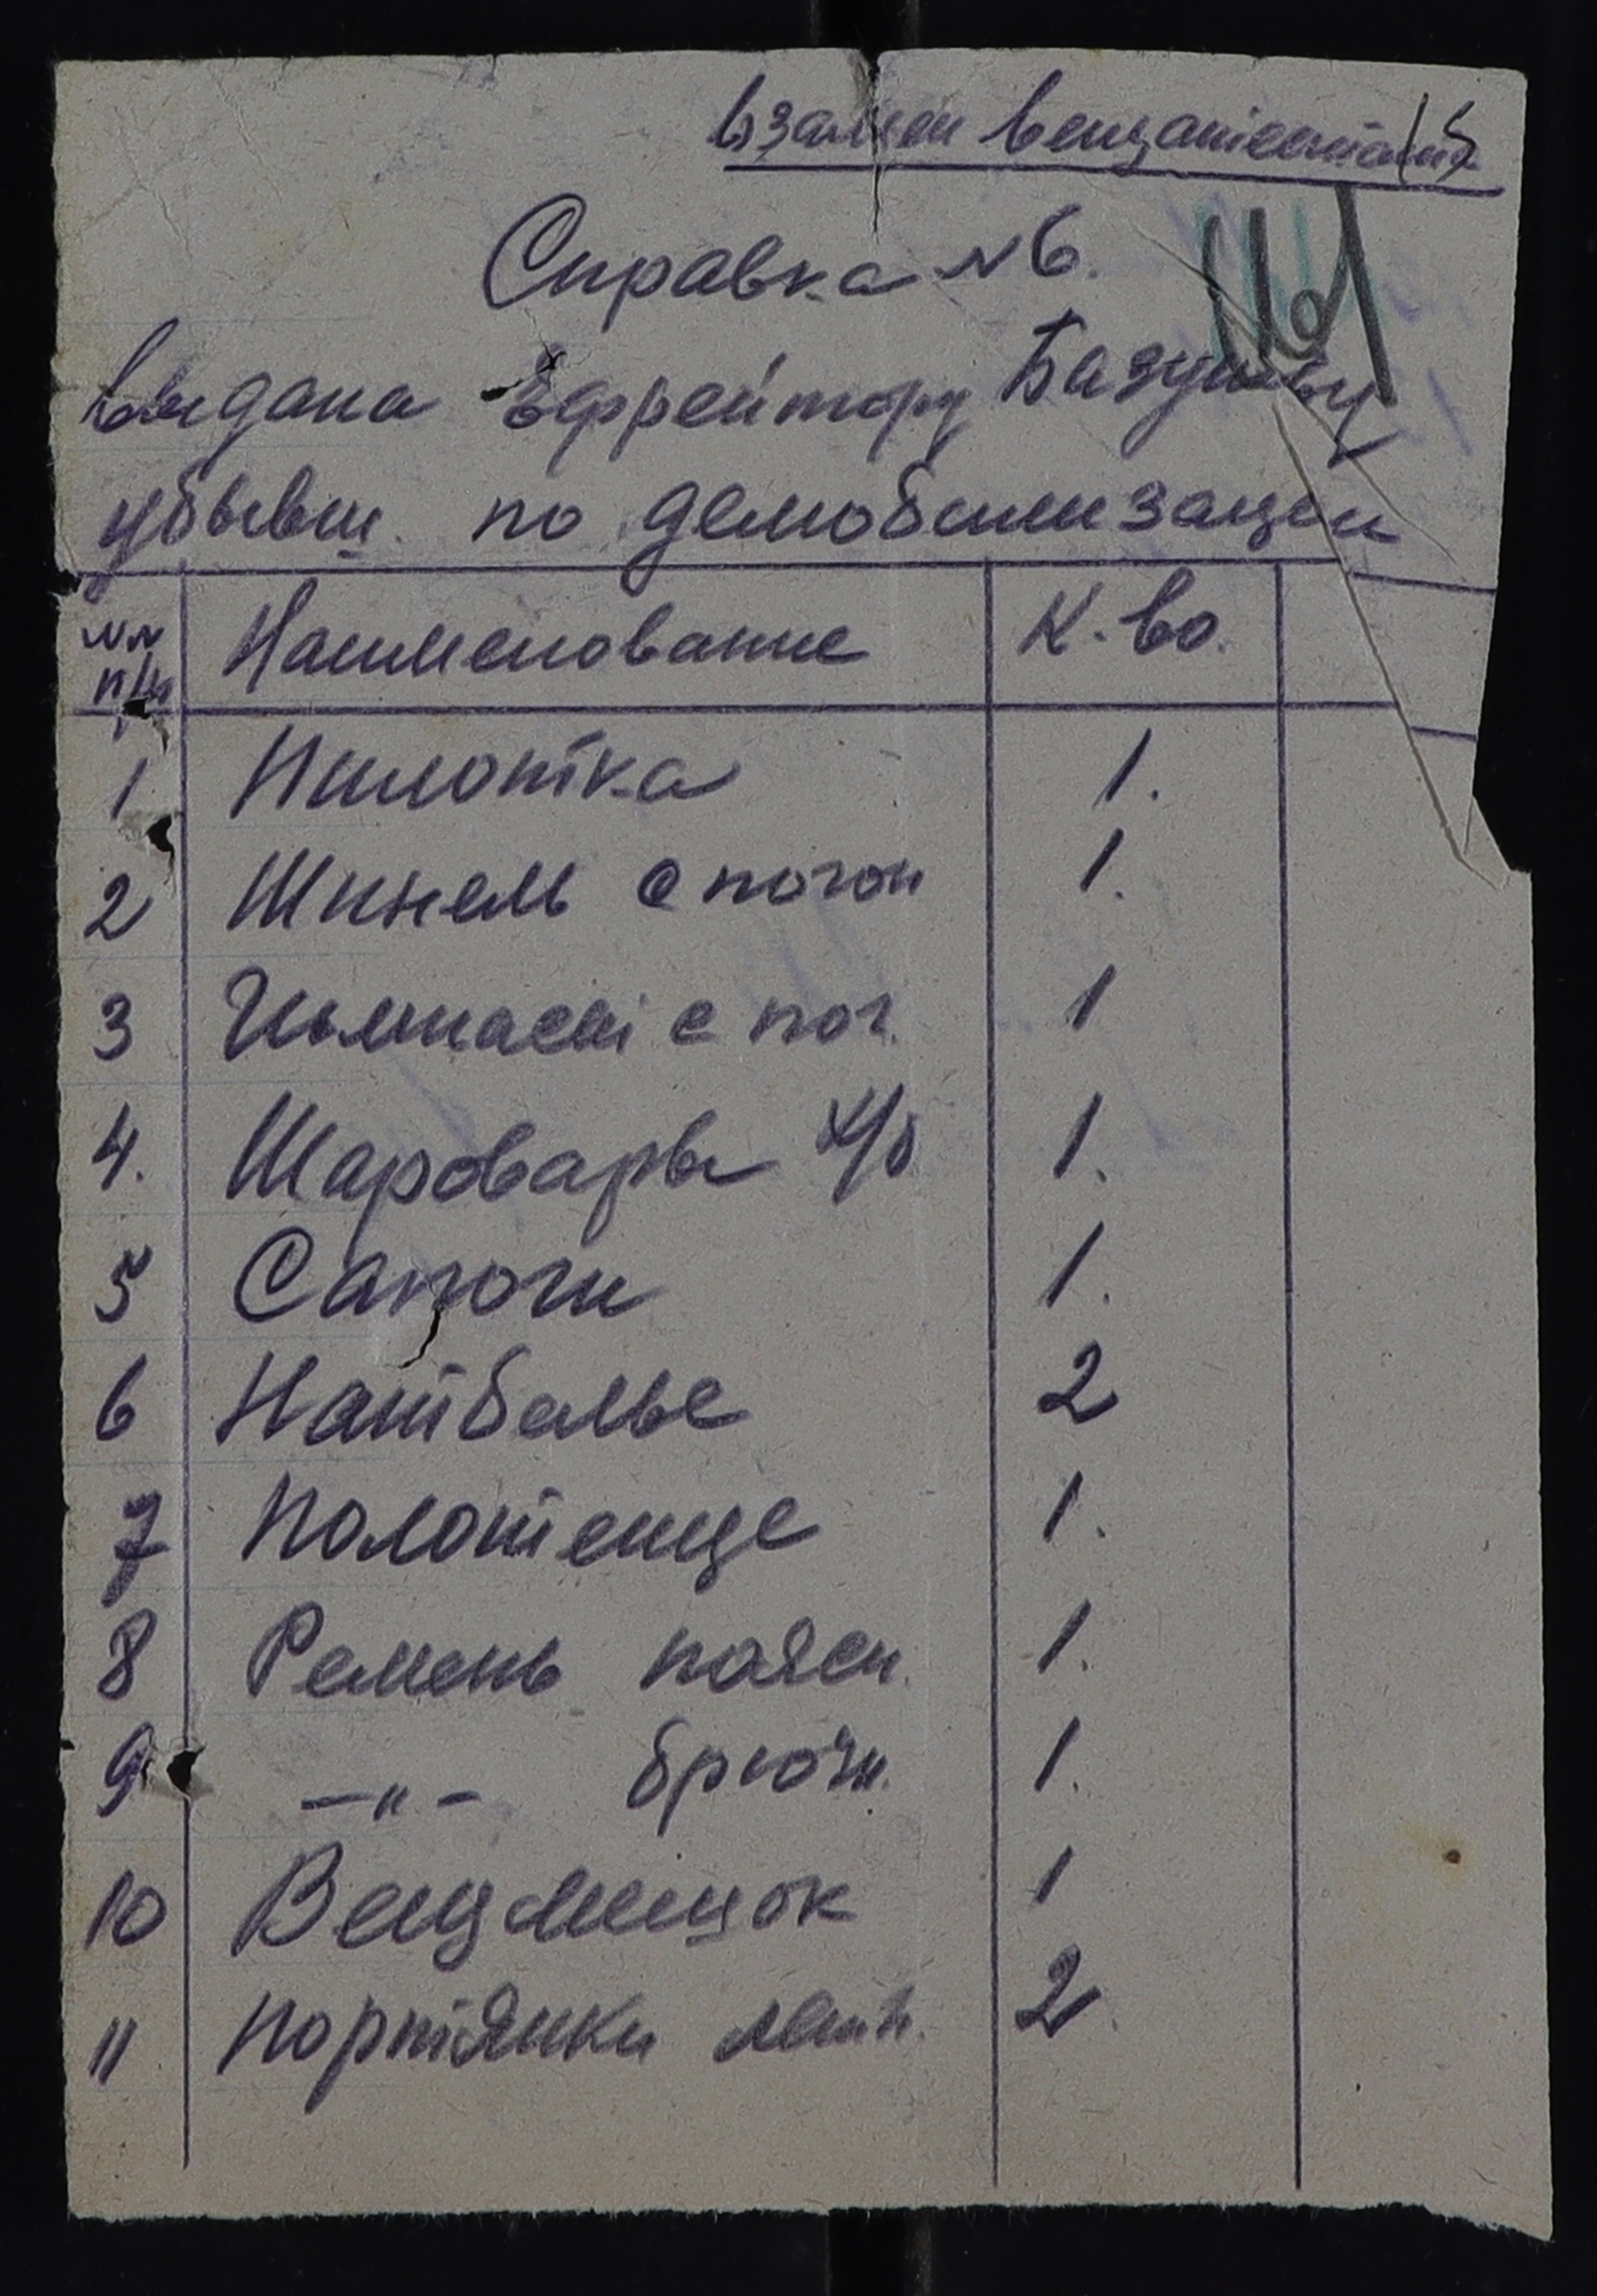 взамен вещаттестата
Справка №6.
выдана Ефрейтору
убывш. по демобилизации
№№ п/п Наименование К-во.
1 Пилотка 1.
2 Шинель с погон 1.
3 Гимнаст с пог. 1
4. Шаровары х/б 1.
5 Сапоги 1.
6 Натбелье 2
7 Полотенце 1.
8 Ремень поясн. 1.
9 -"- брючн. 1.
10 Вещмешок 1
11 Портянки летн. 2.